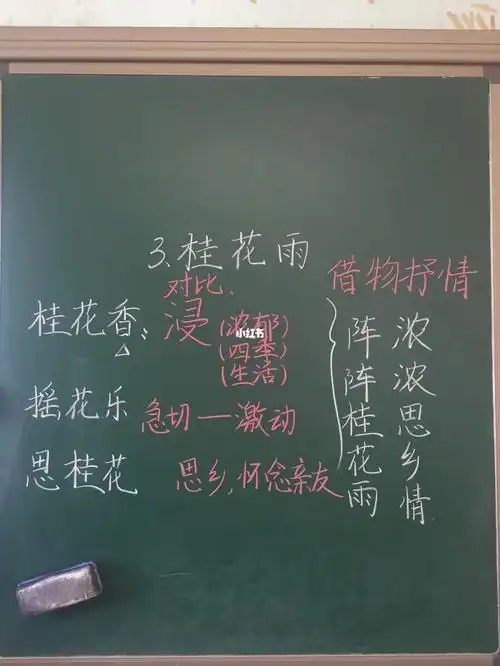 3.桂花雨
对比.
借物抒情
桂花香:浸(浓郁)
(四季)
(生活)
摇花乐 急切—激动
思桂花 思乡,怀念亲友
阵阵桂花雨
浓浓思乡情
小红书